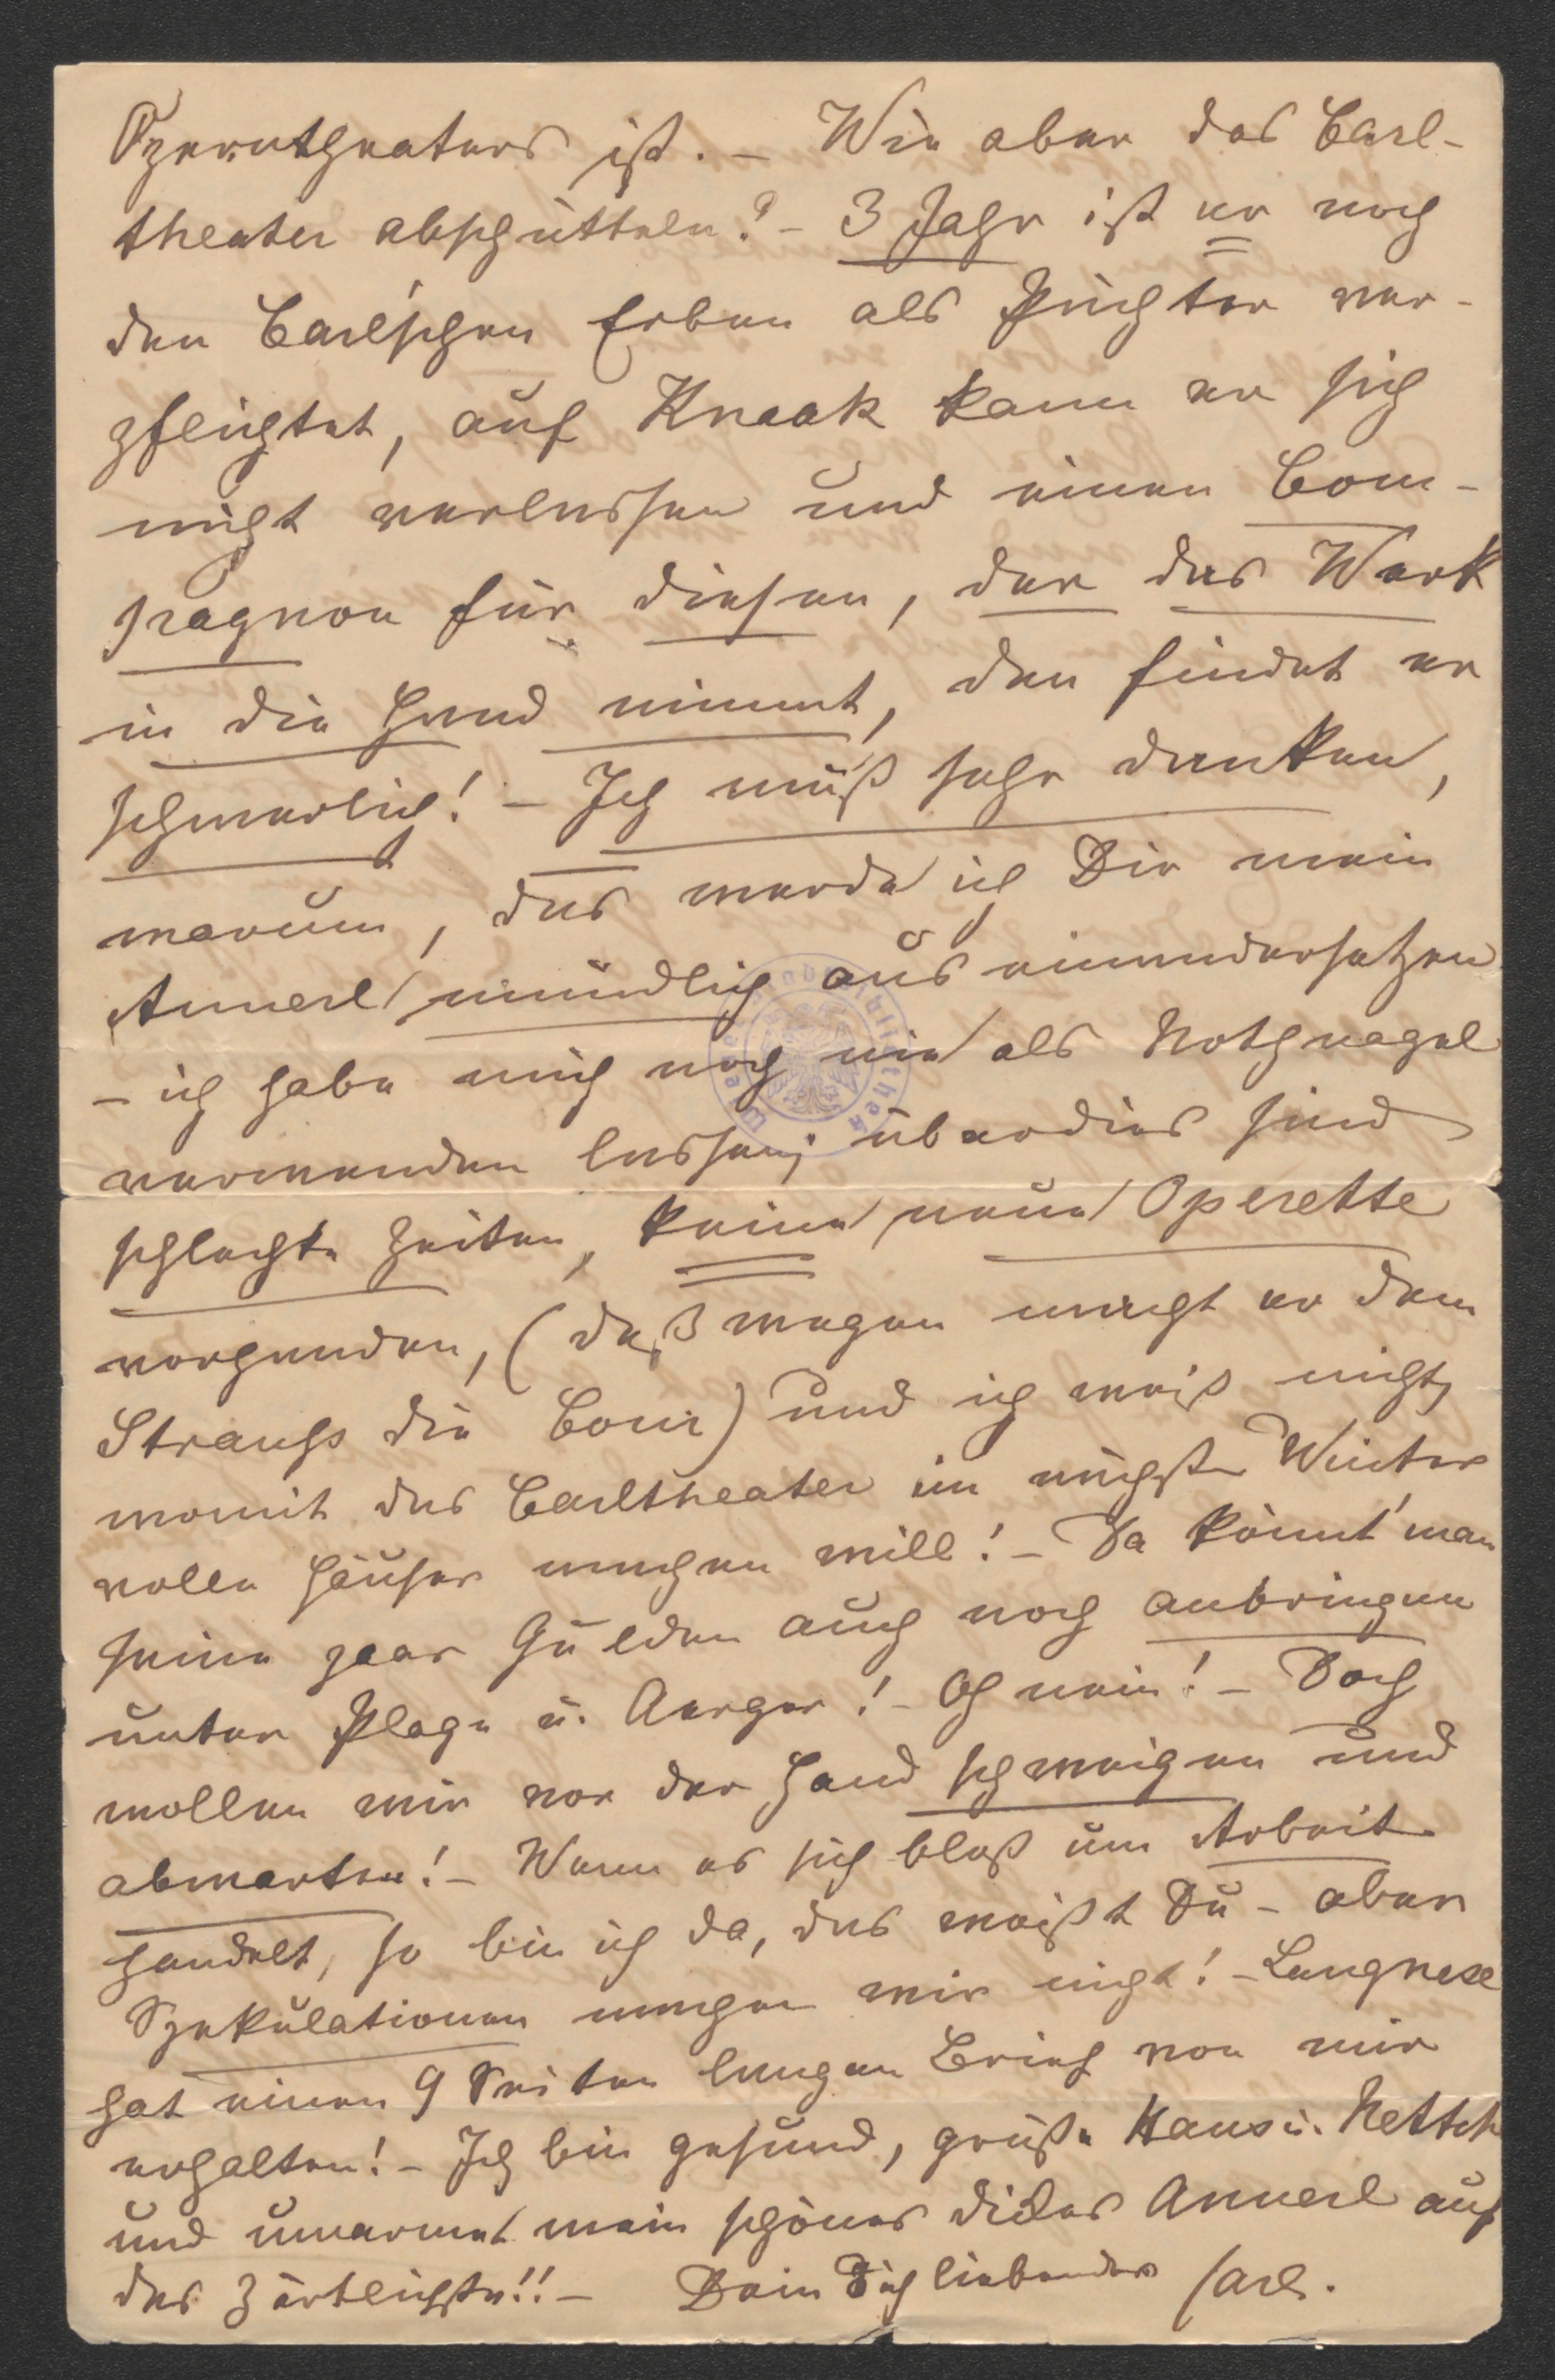 Operntheaters ist. – Wie aber das Carl-
theater abschütteln? – 3 Jahr ist er noch
den Carl'schen Erben als Pächter ver-
pflichtet, auf Knaak kann er sich
nicht verlassen und einen Com-
pagnon für diesen, der das Werk
in die Hand nimmt, den findet er
schwerlich! – Ich muß sehr danken,
warum, das werde ich Dir mein
Annerl mündlich auseinandersetzen
– ich habe mich noch nie als Nothnagel
verwenden lassen; überdies sind
schlechte Zeiten, keine neue Operette
vorhanden, (deßwegen macht er dem
Strauss die Cour) und ich weiß nicht,
womit das Carltheater im nächste Winter
volle Häuser machen will! – Da könnt' man
seine paar Gulden auch noch anbringen
unter Plage u. Aerger! – Oh nein! – Doch
wollen wir vor der Hand schweigen und
abwarten! – Wenn es sich bloß um Arbeit
handelt, so bin ich da, das weißt Du – aber
Spekulationen machen wir nicht! – Langnese
hat einen 9 Seiten langen Brief von mir
erhalten! – Ich bin gesund, grüße Hans u. Nettch
und umarmet mein schönes dickes Annerl auf
das Zärtlichste!! – Dein Dich liebender Carl.